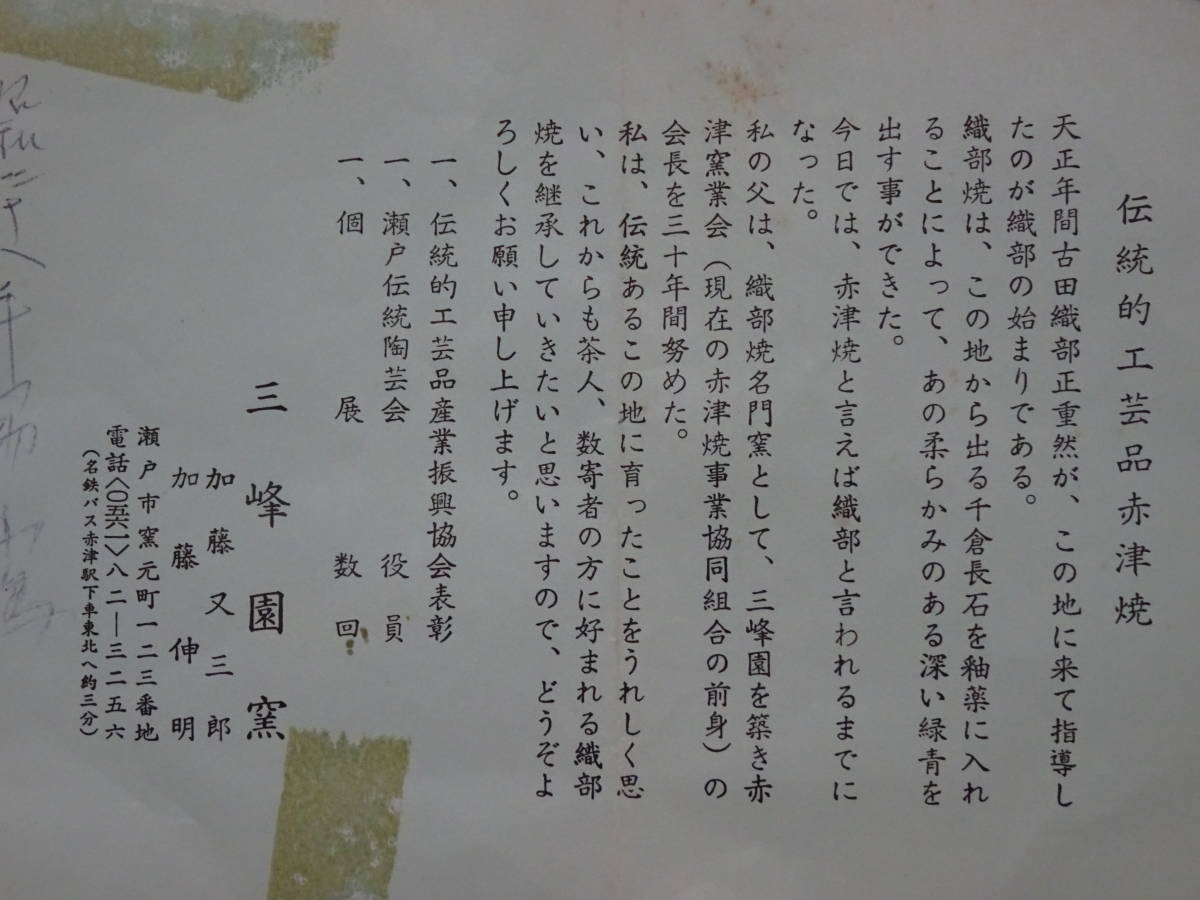 伝統的工芸品赤津焼
天正年間古田織部正重然が、この地に来て指導し
たのが織部の始まりである。
織部焼は、この地から出る千倉長石を釉薬に入れ
ることによって、あの柔らかみのある深い緑青を
出す事ができた。
今日では、赤津焼と言えば織部と言われるまでに
なった。
私の父は、織部焼名門窯として、三峰園を築き赤
津窯業会(現在の赤津焼事業協同組合の前身)の
会長を三十年間努めた。
私は、伝統あるこの地に育ったことをうれしく思
い、これからも茶人、数寄者の方に好まれる織部
焼を継承していきたいと思いますので、どうぞよ
ろしくお願い申し上げます。
一、伝統的工芸品産業振興協会表彰
一、瀬戸伝統陶芸会 役員
一、個展 数回
三峰園窯
加藤又三郎
加藤伸明
瀬戸市窯元町一二三番地
電話〈〇五六一〉八二―三二五六
(名鉄バス赤津駅下車東北へ約三分)
昭和二十八年